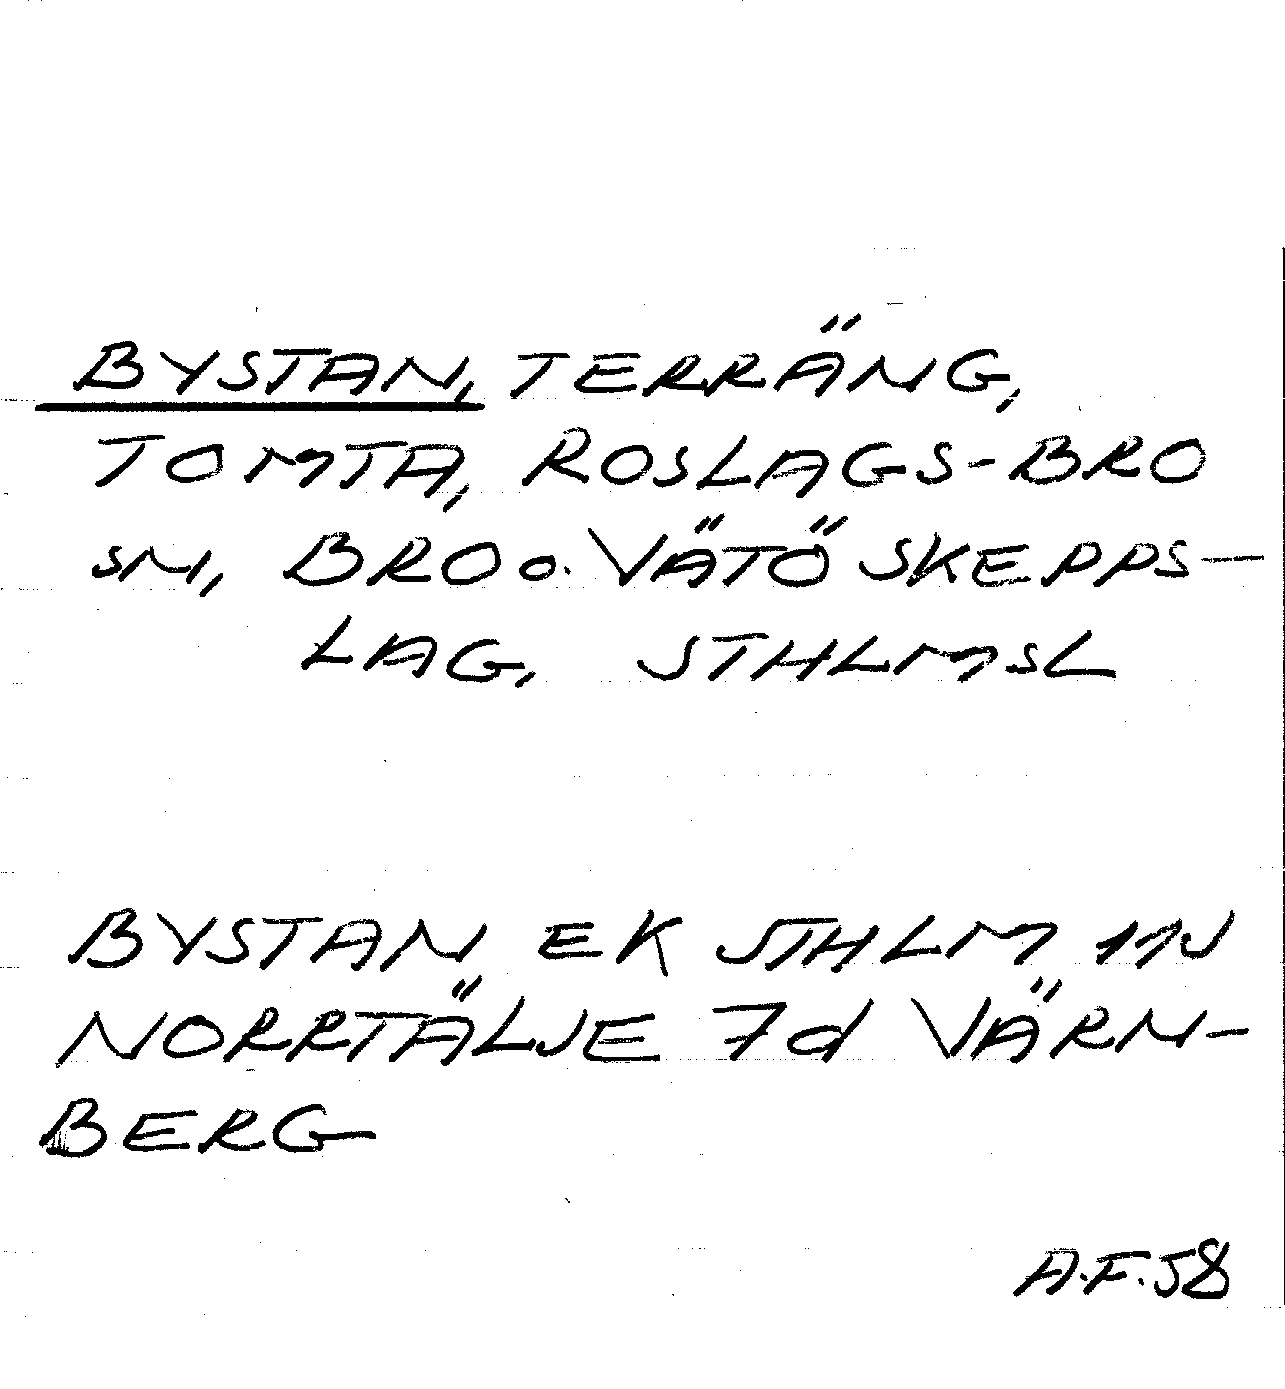 BYSTAN, TERRÄNG,
TOMTA, ROSLAGS-BRO
SN, BRO o. VÄTÖ SKEPPS-
LAG, STHLMSL
BYSTAN EK STHLM 115
NORRTÄLJE 7d VÄRN-
BERG
A.F.58